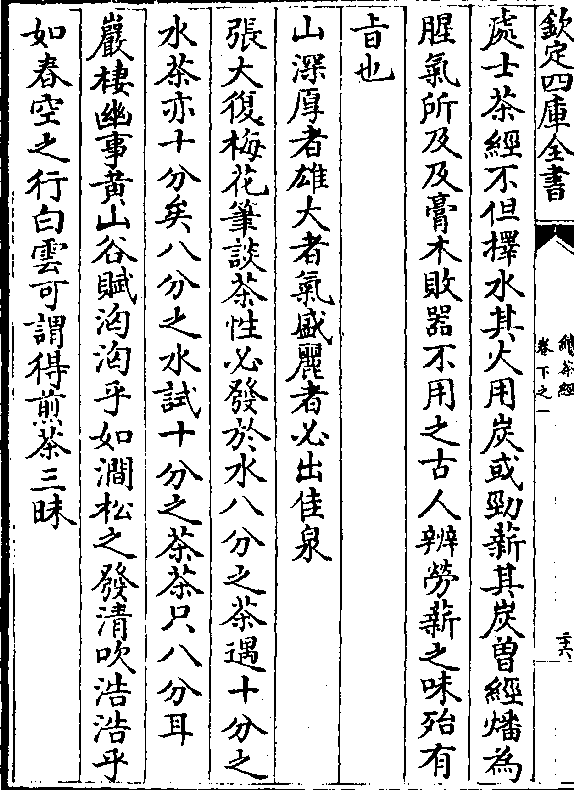 欽定四庫全書
續茶經
卷下之一
二十六
處士茶經不但擇水其火用炭或勁薪其炭曽經燔為
腥氣所及及膏木敗器不用之古人辨勞薪之味殆有
㫖也
山深厚者雄大者氣盛麗者必出佳泉
張大復梅花筆談茶性必發於水八分之茶遇十分之
水茶亦十分矣八分之水試十分之茶茶只八分耳
巖棲幽事黄山谷賦洶洶乎如澗松之發清吹浩浩乎
如春空之行白雲可謂得煎茶三昧